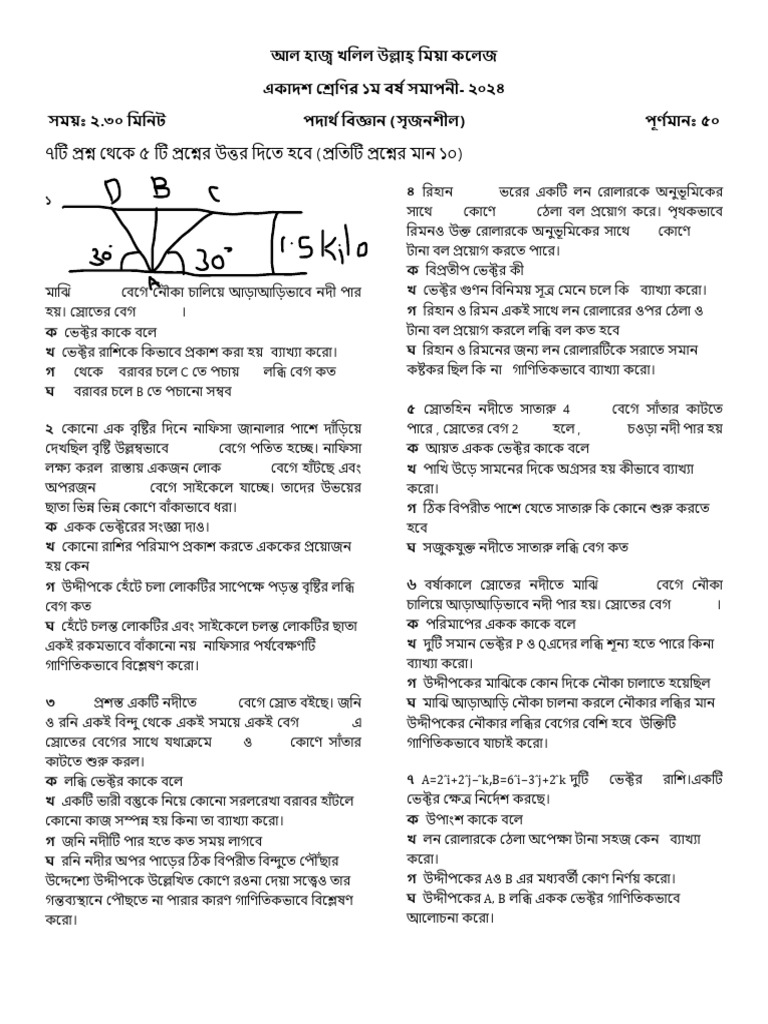 আল হাজ্ব খলিল উল্লাহ্ মিয়া কলেজ
একাদশ শ্রেণির ১ম বর্ষ সমাপনী- ২০২৪
সময়ঃ ২.৩০ মিনিট পদার্থ বিজ্ঞান (সৃজনশীল) পূর্ণমানঃ ৫০
৭টি প্রশ্ন থেকে ৫ টি প্রশ্নের উত্তর দিতে হবে (প্রতিটি প্রশ্নের মান ১০)
১
D B C
30° 30° 1.5 kilo
A
মাঝি বেগে নৌকা চালিয়ে আড়াআড়িভাবে নদী পার
হয়। স্রোতের বেগ ।
ক ভেক্টর কাকে বলে
খ ভেক্টর রাশিকে কিভাবে প্রকাশ করা হয় ব্যাখ্যা করো।
গ থেকে বরাবর চলে C তে পচায় লব্ধি বেগ কত
ঘ বরাবর চলে B তে পচানো সম্বব
২ কোনো এক বৃষ্টির দিনে নাফিসা জানালার পাশে দাঁড়িয়ে
দেখছিল বৃষ্টি উল্লম্বভাবে বেগে পতিত হচ্ছে। নাফিসা
লক্ষ্য করল রাস্তায় একজন লোক বেগে হাঁটছে এবং
অপরজন বেগে সাইকেলে যাচ্ছে। তাদের উভয়ের
ছাতা ভিন্ন ভিন্ন কোণে বাঁকাভাবে ধরা।
ক একক ভেক্টরের সংজ্ঞা দাও।
খ কোনো রাশির পরিমাপ প্রকাশ করতে এককের প্রয়োজন
হয় কেন
গ উদ্দীপকে হেঁটে চলা লোকটির সাপেক্ষে পড়ন্ত বৃষ্টির লব্ধি
বেগ কত
ঘ হেঁটে চলন্ত লোকটির এবং সাইকেলে চলন্ত লোকটির ছাতা
একই রকমভাবে বাঁকানো নয় নাফিসার পর্যবেক্ষণটি
গাণিতিকভাবে বিশ্লেষণ করো।
৩ প্রশস্ত একটি নদীতে বেগে স্রোত বইছে। জনি
ও রনি একই বিন্দু থেকে একই সময়ে একই বেগ এ
স্রোতের বেগের সাথে যথাক্রমে ও কোণে সাঁতার
কাটতে শুরু করল।
ক লব্ধি ভেক্টর কাকে বলে
খ একটি ভারী বস্তুকে নিয়ে কোনো সরলরেখা বরাবর হাঁটলে
কোনো কাজ সম্পন্ন হয় কিনা তা ব্যাখ্যা করো।
গ জনি নদীটি পার হতে কত সময় লাগবে
ঘ রনি নদীর অপর পাড়ের ঠিক বিপরীত বিন্দুতে পৌঁছার
উদ্দেশ্যে উদ্দীপকে উল্লেখিত কোণে রওনা দেয়া সত্ত্বেও তার
গন্তব্যস্থানে পৌছতে না পারার কারণ গাণিতিকভাবে বিশ্লেষণ
করো।
৪ রিহান ভরের একটি লন রোলারকে অনুভূমিকের
সাথে কোণে ঠেলা বল প্রয়োগ করে। পৃথকভাবে
রিমনও উক্ত রোলারকে অনুভূমিকের সাথে কোণে
টানা বল প্রয়োগ করতে পারে।
ক বিপ্রতীপ ভেক্টর কী
খ ভেক্টর গুণন বিনিময় সূত্র মেনে চলে কি ব্যাখ্যা করো।
গ রিহান ও রিমন একই সাথে লন রোলারের ওপর ঠেলা ও
টানা বল প্রয়োগ করলে লব্ধি বল কত হবে
ঘ রিহান ও রিমনের জন্য লন রোলারটিকে সরাতে সমান
কষ্টকর ছিল কি না গাণিতিকভাবে ব্যাখ্যা করো।
৫ স্রোতহিন নদীতে সাতারু 4 বেগে সাঁতার কাটতে
পারে , স্রোতের বেগ 2 হলে , চওড়া নদী পার হয়
ক আয়ত একক ভেক্টর কাকে বলে
খ পাখি উড়ে সামনের দিকে অগ্রসর হয় কীভাবে ব্যাখ্যা
করো।
গ ঠিক বিপরীত পাশে যেতে সাতারু কি কোনে শুরু করতে
হবে
ঘ সজুকযুক্ত নদীতে সাতারু লব্ধি বেগ কত
৬ বর্ষাকালে স্রোতের নদীতে মাঝি বেগে নৌকা
চালিয়ে আড়াআড়িভাবে নদী পার হয়। স্রোতের বেগ ।
ক পরিমাপের একক কাকে বলে
খ দুটি সমান ভেক্টর P ও Qএদের লব্ধি শূন্য হতে পারে কিনা
ব্যাখ্যা করো।
গ উদ্দীপকের মাঝিকে কোন দিকে নৌকা চালাতে হয়েছিল
ঘ মাঝি আড়াআড়ি নৌকা চালনা করলে নৌকার লব্ধির মান
উদ্দীপকের নৌকার লব্ধির বেগের বেশি হবে উক্তিটি
গাণিতিকভাবে যাচাই করো।
৭ A=2ˆi+2ˆj−ˆk,B=6ˆi−3ˆj+2ˆk দুটি ভেক্টর রাশি।একটি
ভেক্টর ক্ষেত্র নির্দেশ করছে।
ক উপাংশ কাকে বলে
খ লন রোলারকে ঠেলা অপেক্ষা টানা সহজ কেন ব্যাখ্যা
করো।
গ উদ্দীপকের Aও B এর মধ্যবর্তী কোণ নির্ণয় করো।
ঘ উদ্দীপকের A, B লব্ধি একক ভেক্টর গাণিতিকভাবে
আলোচনা করো।